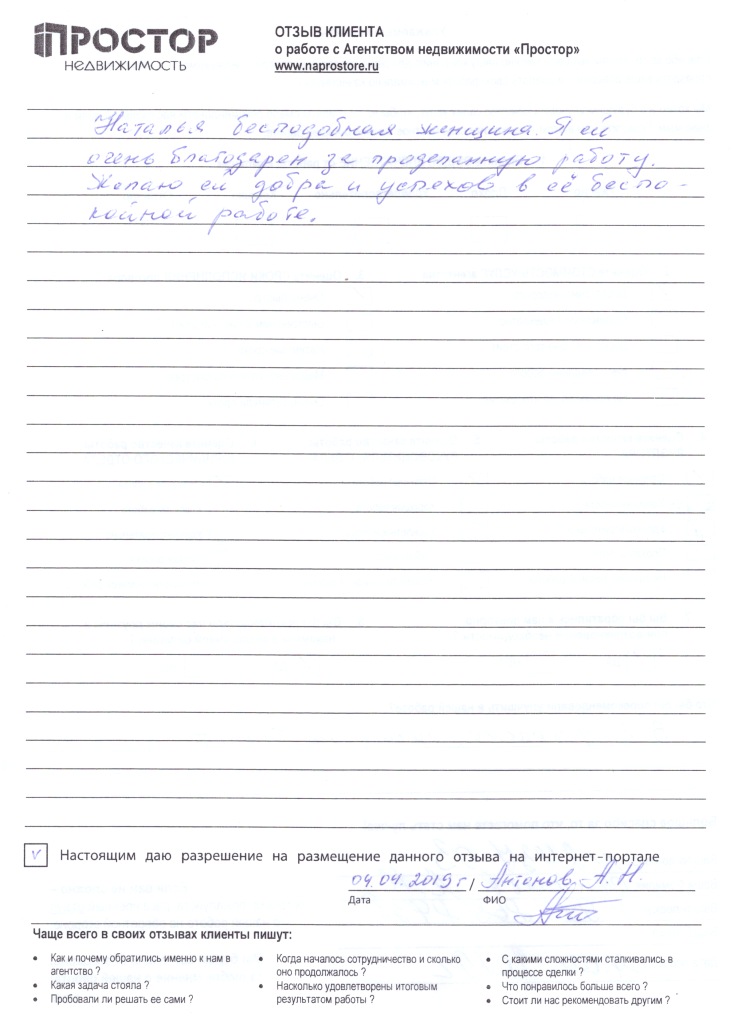 ПРОСТОР
НЕДВИЖИМОСТЬ
ОТЗЫВ КЛИЕНТА
о работе с Агентством недвижимости «Простор»
www.naprostore.ru
Наталья бесподобная женщина. Я ей
очень благодарен за проделанную работу.
Желаю ей добра и успехов в её беспо-
койной работе.
v Настоящим даю разрешение на размещение данного отзыва на интернет-портале
04.04.2019 г / Антонов А. Н.
Дата ФИО
Чаще всего в своих отзывах клиенты пишут:
• Как и почему обратились именно к нам в
агентство ?
• Какая задача стояла ?
• Пробовали ли решать ее сами ?
• Когда началось сотрудничество и сколько
оно продолжалось ?
• Насколько удовлетворены итоговым
результатом работы ?
• С какими сложностями сталкивались в
процессе сделки ?
• Что понравилось больше всего ?
• Стоит ли нас рекомендовать другим ?